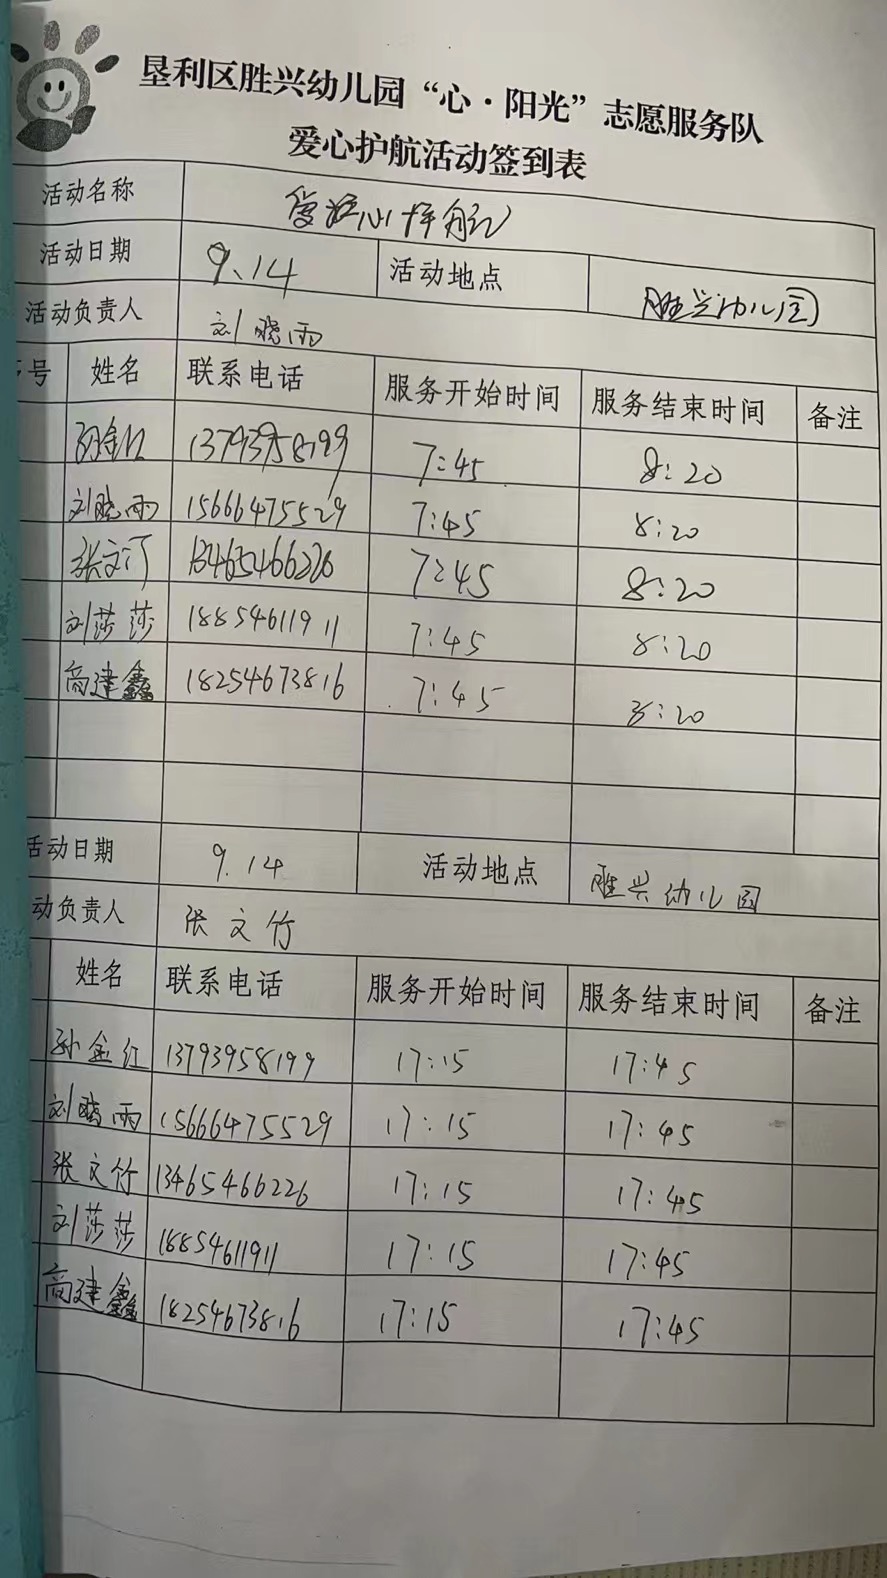 垦利区胜兴幼儿园“心·阳光”志愿服务队
爱心护航活动签到表
活动名称
活动日期 9.14 活动地点 胜兴幼儿园
活动负责人 刘晓雨
号 姓名 联系电话 服务开始时间 服务结束时间 备注
孙金红 13793958199 7:45 8:20
刘晓雨 15666475529 7:45 8:20
张文竹 13465466226 7:45 8:20
刘莎莎 18854611911 7:45 8:20
高建鑫 18254673816 7:45 8:20
活动日期 9.14 活动地点 胜兴幼儿园
动负责人 张文竹
姓名 联系电话 服务开始时间 服务结束时间 备注
孙金红 13793958199 17:15 17:45
刘晓雨 15666475529 17:15 17:45
张文竹 13465466226 17:15 17:45
刘莎莎 18854611911 17:15 17:45
高建鑫 18254673816 17:15 17:45